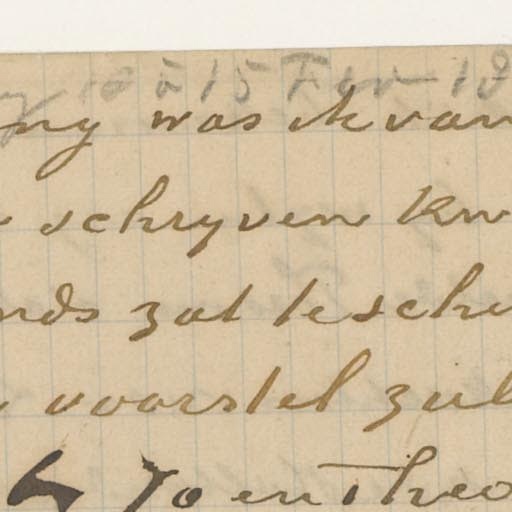 10 à 15 Fev 18
ny was ik van
schryven kw
nds zat te sch
voorstel zul
Jo en Theo